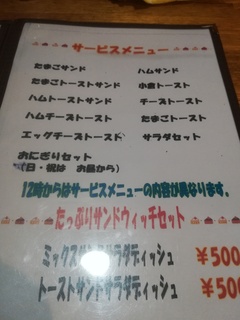 サービスメニュー
たまごサンド ハムサンド
たまごトーストサンド 小倉トースト
ハムトーストサンド チーズトースト
ハムチーズトースト たまごトースト
エッグチーズトースト サラダセット
おにぎりセット
(日・祝は お昼から)
12時からはサービスメニューの内容が異なります。
たっぷりサンドウィッチセット
ミックスサンドサラダディッシュ ¥500
トーストサンドサラダディッシュ ¥500